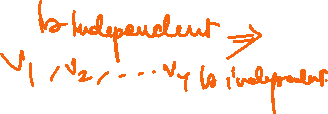 is independent ⇒
v₁, v₂, ... v₄ is independent.